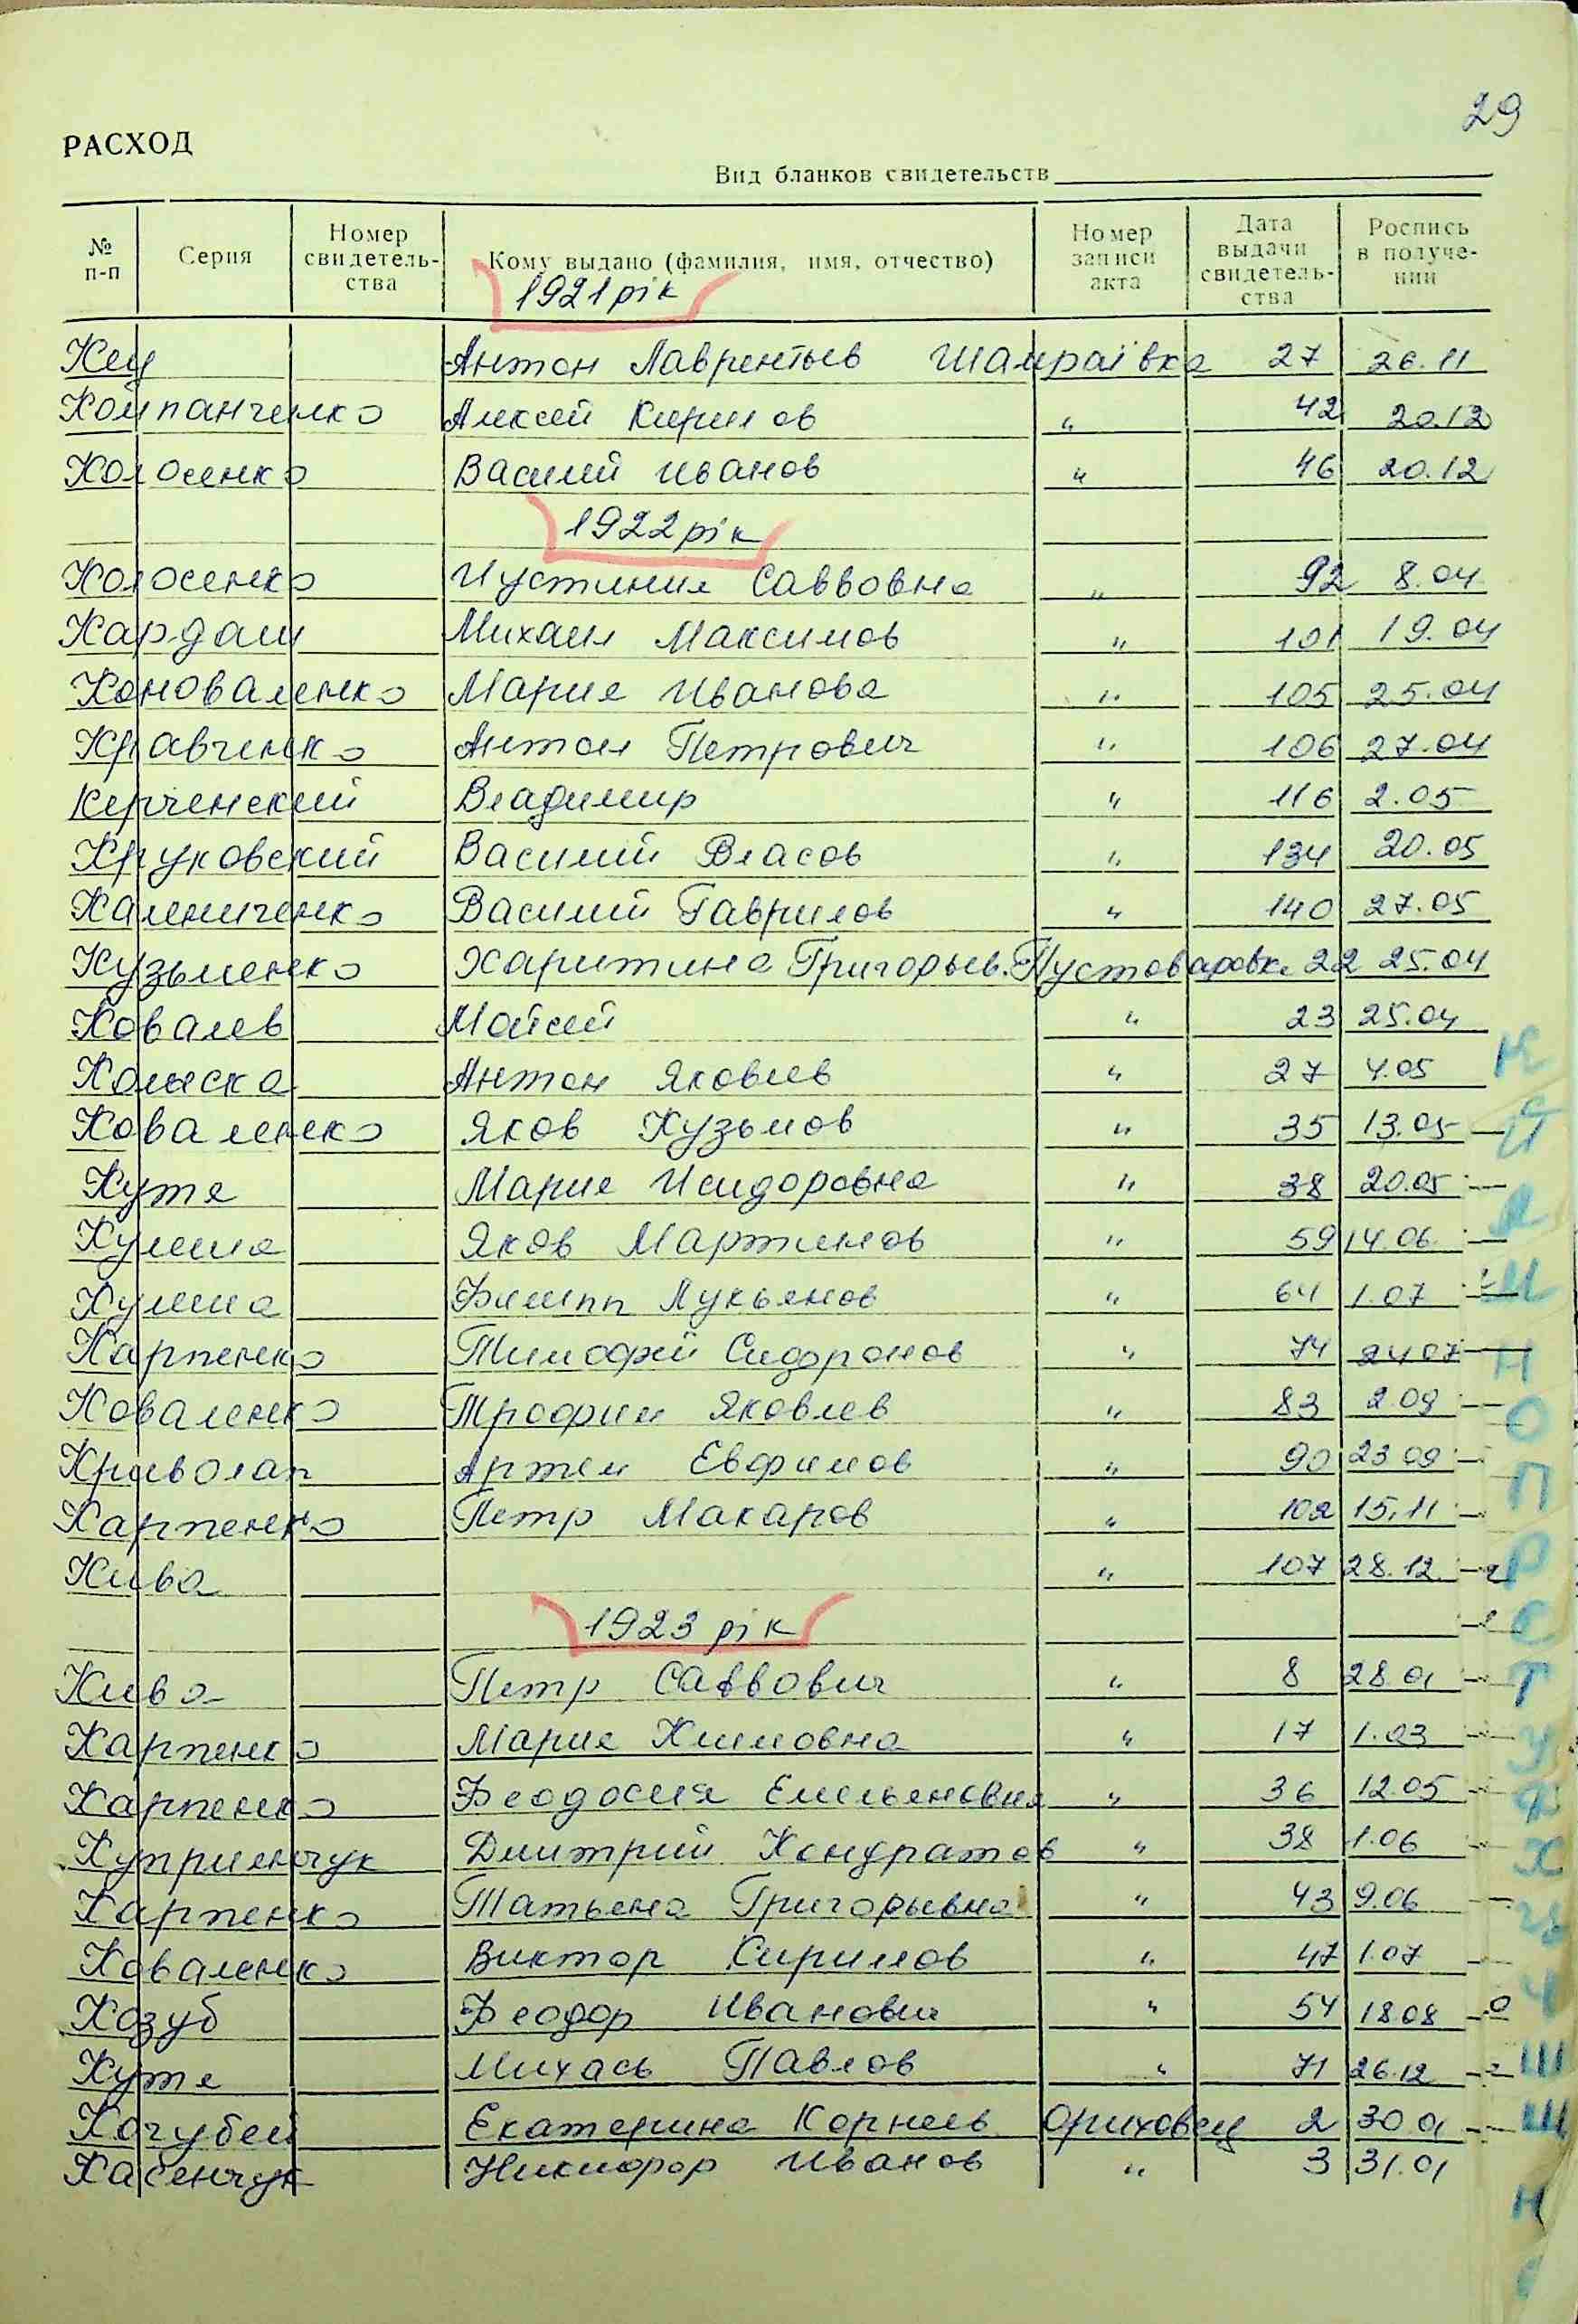 29
РАСХОД
Вид бланков свидетельств
№ п-п Серия Номер свидетель-ства Кому выдано (фамилия, имя, отчество) Номер записи акта Дата выдачи свидетель-ства Роспись в получе-нии
1921 рік
Кец Антон Лаврентьев Шамраївка 27 26.11
Компанченко Алексей Кирилов " 42 20.12
Колосенко Василий Иванов " 46 20.12
1922 рік
Колосенко Иустиния Саввовна " 92 8.04
Кардаш Михаил Максимов " 101 19.04
Коноваленко Мария Иванова " 105 25.04
Кравченко Антон Петрович " 106 27.04
Керченский Владимир " 116 2.05
Круковский Василий Власов " 134 20.05
Калениченко Василий Гаврилов " 140 27.05
Кузьменко Харитина Григорьев. Пустоваровка 22 25.04
Ковалев Мойсей " 23 25.04
Колыска Антон Яковлев " 27 4.05
Коваленко Яков Кузьмов " 35 13.05
Кутя Мария Исидоровна " 38 20.05
Кулина Яков Мартинов " 59 14.06
Кулина Филипп Лукьянов " 64 1.07
Карпенко Тимофей Сидоронов " 74 24 07
Коваленко Трофим Яковлев " 83 2.09
Криволап Артем Евфимов " 90 23 09
Карпенко Петр Макаров " 102 15.11
Кива " 107 28.12
1923 рік
Кива Петр Саввович " 8 28.01
Карпенко Мария Климовна " 17 1.03
Карпенко Феодосия Емельяновна " 36 12.05
Куприянчук Дмитрий Кондратов " 38 1.06
Карпенко Татьяна Григорьевна " 43 9.06
Коваленко Виктор Кирилов " 47 1.07
Козуб Феодор Иванович " 54 18 08
Кутя Михась Павлов " 71 26.12
Кочубей Екатерина Корнеев Ориховец 2 30 01
Касенчук Никифор Иванов " 3 31.01
К
Л
М
Н
О
П
Р
С
Т
У
Ф
Х
Ц
Ч
Ш
Щ